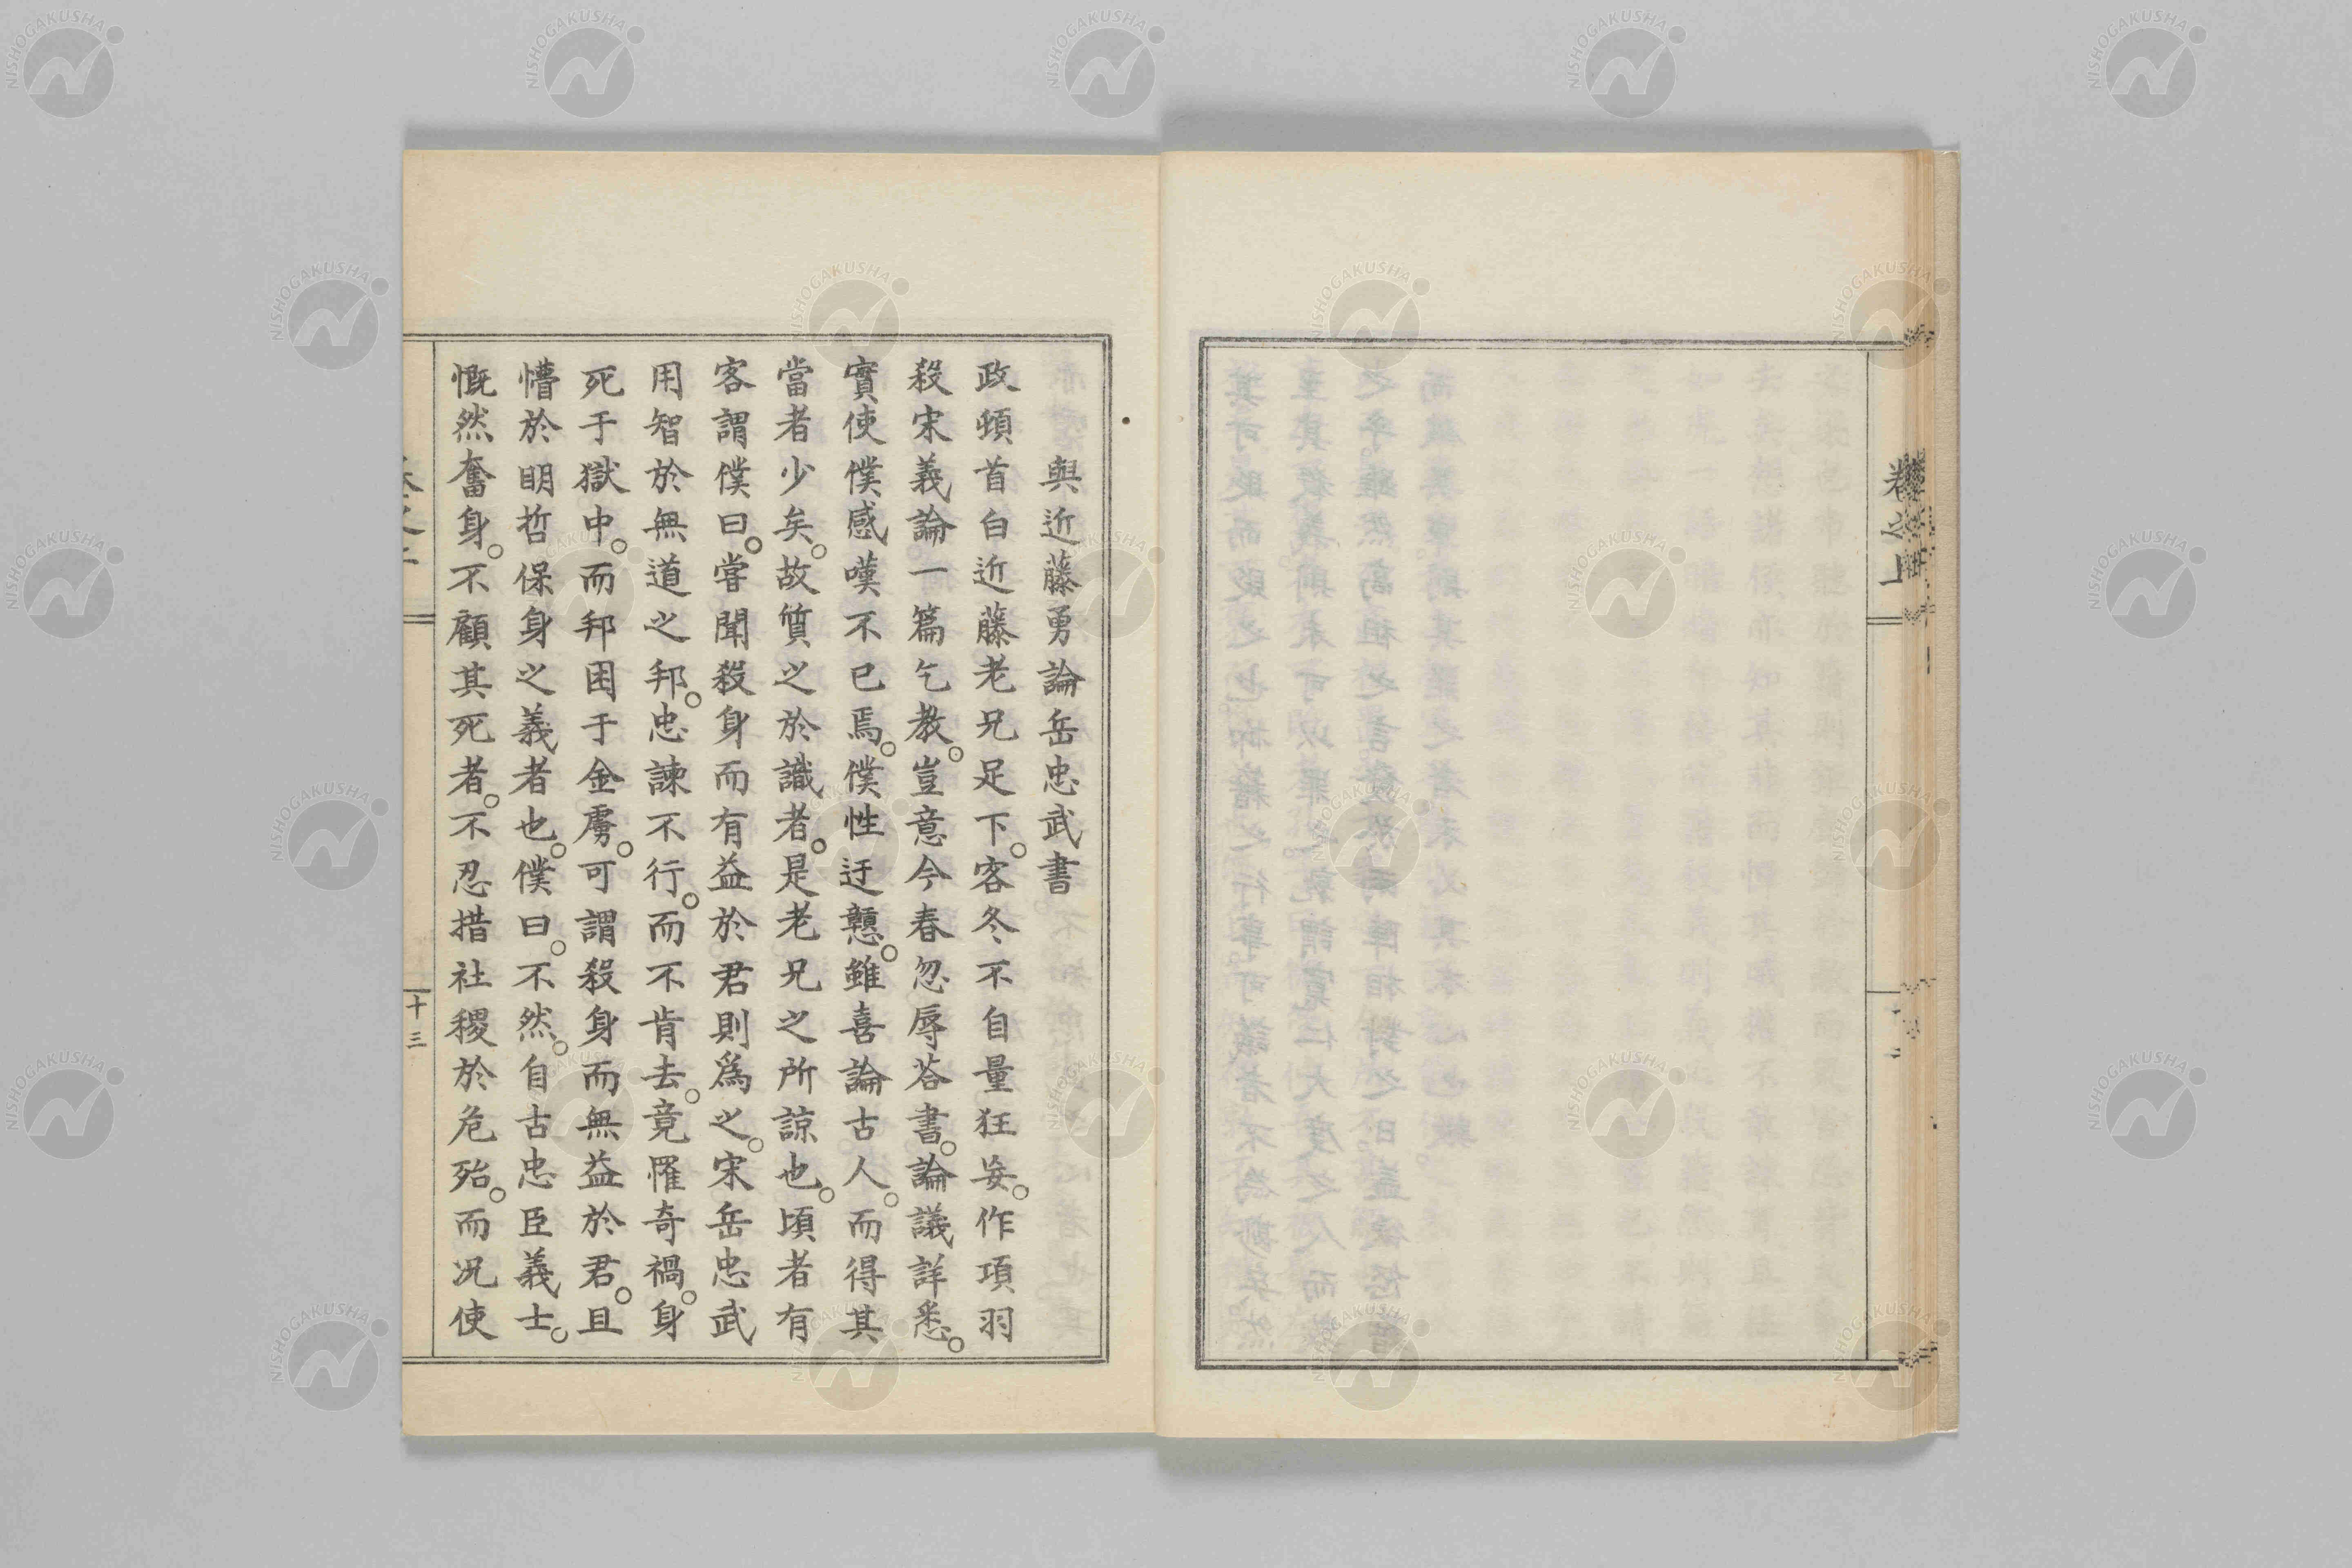 卷之上
與近藤勇論岳忠武書
政頓首白近藤老兄足下。客冬不自量狂妄。作項羽
殺宋義論一篇乞教。豈意今春忽辱荅書。論議詳悉。
實使僕感嘆不已焉。僕性迂戇。雖喜論古人。而得其
當者少矣。故質之於識者。是老兄之所諒也。頃者有
客謂僕曰。嘗聞殺身而有益於君則爲之。宋岳忠武
用智於無道之邦。忠諫不行。而不肯去。竟罹奇禍。身
死于獄中。而邦困于金虜。可謂殺身而無益於君。且
懵於明哲保身之義者也。僕曰。不然。自古忠臣義士。
慨然奮身。不顧其死者。不忍措社稷於危殆。而况使
十三
NISHOGAKUSHA